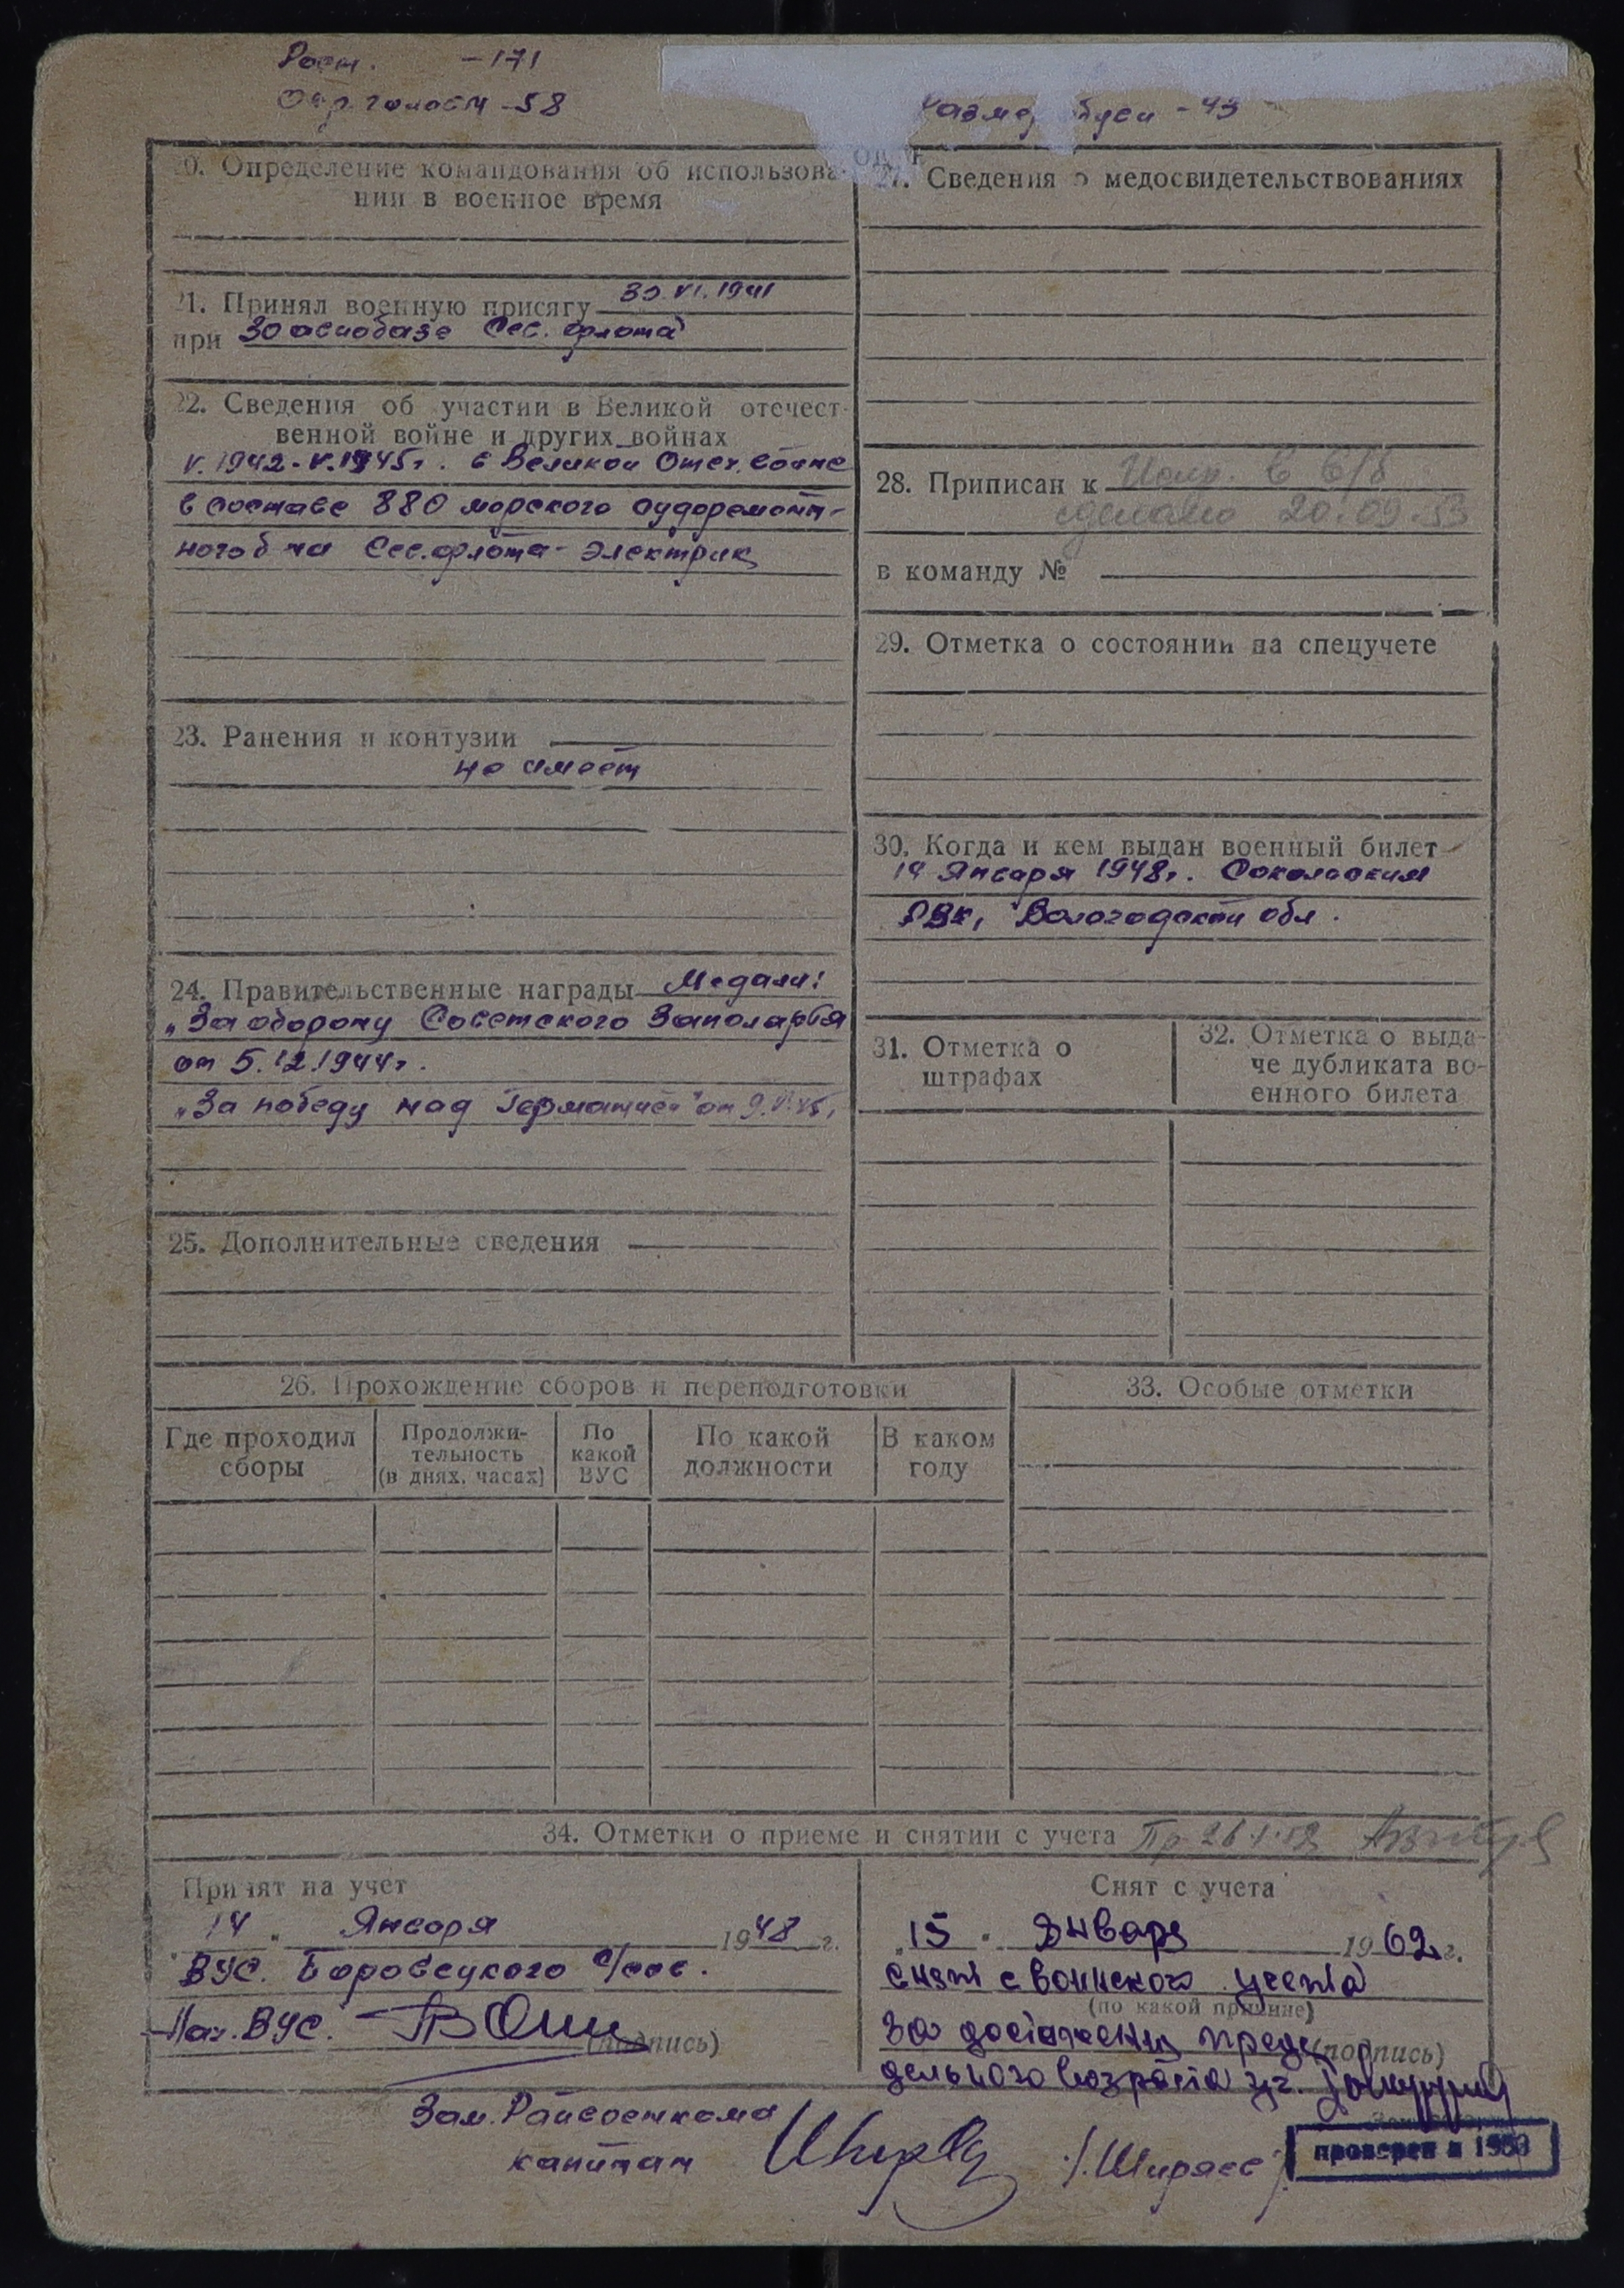 Рост. -171
Окр. головы -58
Размер обуви - 43
20. Определение командования об использова-
нии в военное время
21. Принял военную присягу 30.VI.1941
при 30 авиобазе Сев. флота
22. Сведения об участии в Великой отечест-
венной войне и других войнах
V.1942-V.1945г. в Великой Отеч. войне
в составе 880 морского судоремонт-
ного б-на Сев.флота-электрик
23. Ранения и контузии
не имеет
24. Правительственные награды Медали:
„За оборону Советского Заполярья
от 5.12.1944г.
„За победу над Германией" от 9.V.45г
25. Дополнительные сведения
27. Сведения о медосвидетельствованиях
28. Приписан к
сделано 20.09.53
в команду №
29. Отметка о состоянии на спецучете
30. Когда и кем выдан военный билет
14 Января 1948г. Сокольским
РВК, Вологодской обл.
31. Отметка о
штрафах
32. Отметка о выда-
че дубликата во-
енного билета
26. Прохождение сборов и переподготовки
Где проходил
сборы
Продолжи-
тельность
(в днях, часах)
По
какой
ВУС
По какой
должности
В каком
году
33. Особые отметки
34. Отметки о приеме и снятии с учета
Принят на учет
14 „ Января 1948 г.
ВУС. Боровецкого с/сов.
Нач. ВУС.
(подпись)
Зам. Райвоенкома
капитан
/.Ширяев/.
Снят с учета
„15 " Январь 1962 г.
снят с воинского учета
(по какой причине)
за достижением пре
(подпись)
дельного возраста
проверен в 1950